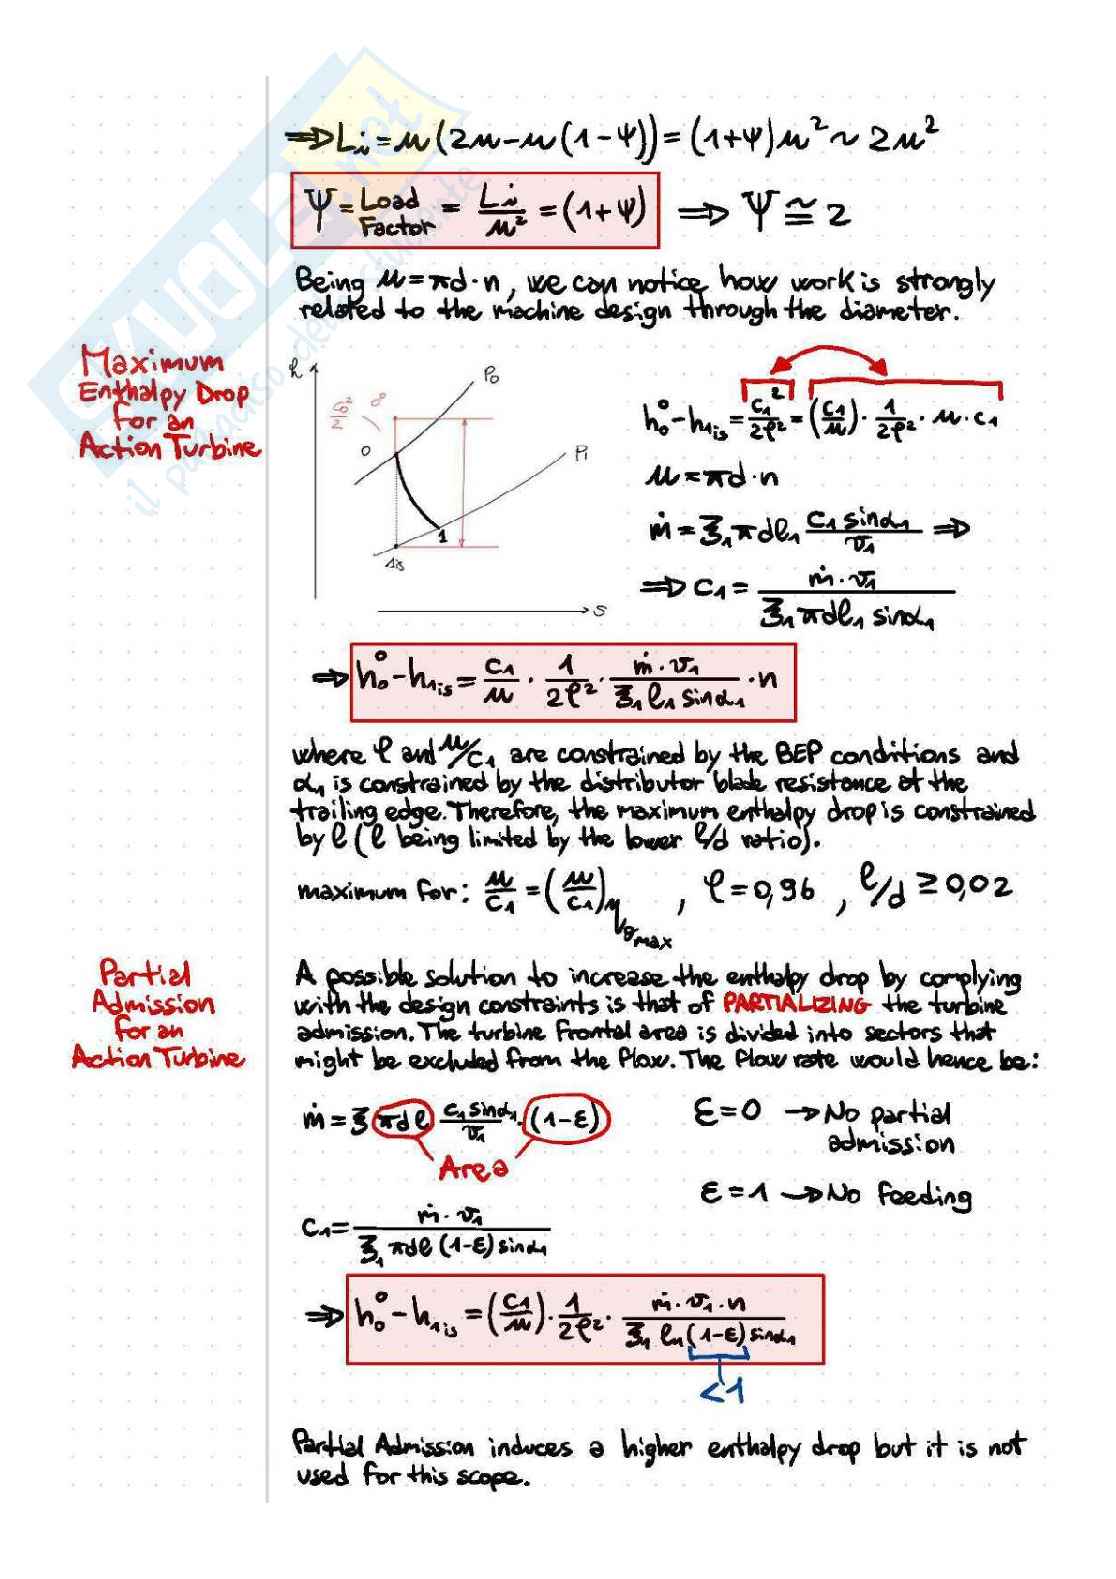 ⇒ Li = u(2u-u(1-ψ)) = (1+ψ)u² ~ 2u²
Ψ = Load Factor = Li/u² = (1+ψ) ⇒ Ψ ≅ 2
Being u = πd·n, we can notice how work is strongly
related to the machine design through the diameter.
Maximum
Enthalpy Drop
for an
Action Turbine
h
P0
0
P1
1
1is
s
h0⁰-h1is = c1²/2φ² = (c1/u)·1/2φ²·u·c1
u = πd·n
ṁ = ξ1πdl1 c1 sinα1/v1 ⇒
⇒ c1 = ṁ·v1/ξ1πdl1 sinα1
⇒ h0⁰-h1is = c1/u · 1/2φ² · ṁ·v1/ξ1 l1 sinα1 · n
where φ and u/c1 are constrained by the BEP conditions and
α1 is constrained by the distributor blade resistance at the
trailing edge. Therefore, the maximum enthalpy drop is constrained
by l (l being limited by the lower l/d ratio).
maximum for: u/c1 = (u/c1)ηθmax, φ=0,96, l/d ≥ 0,02
Partial
Admission
for an
Action Turbine
A possible solution to increase the enthalpy drop by complying
with the design constraints is that of PARTIALIZING the turbine
admission. The turbine frontal area is divided into sectors that
might be excluded from the flow. The flow rate would hence be:
ṁ = ξ πdl c1 sinα1/v1·(1-ε)
Area
ε=0 → No partial
admission
ε=1 → No feeding
c1 = ṁ·v1/ξ1 πdl (1-ε) sinα1
⇒ h0⁰-h1is = (c1/u)·1/2φ²·ṁ·v1·n/ξ1 l1(1-ε)sinα1
<1
Partial Admission induces a higher enthalpy drop but it is not
used for this scope.
SKUOLA.net
il paradiso dello studente